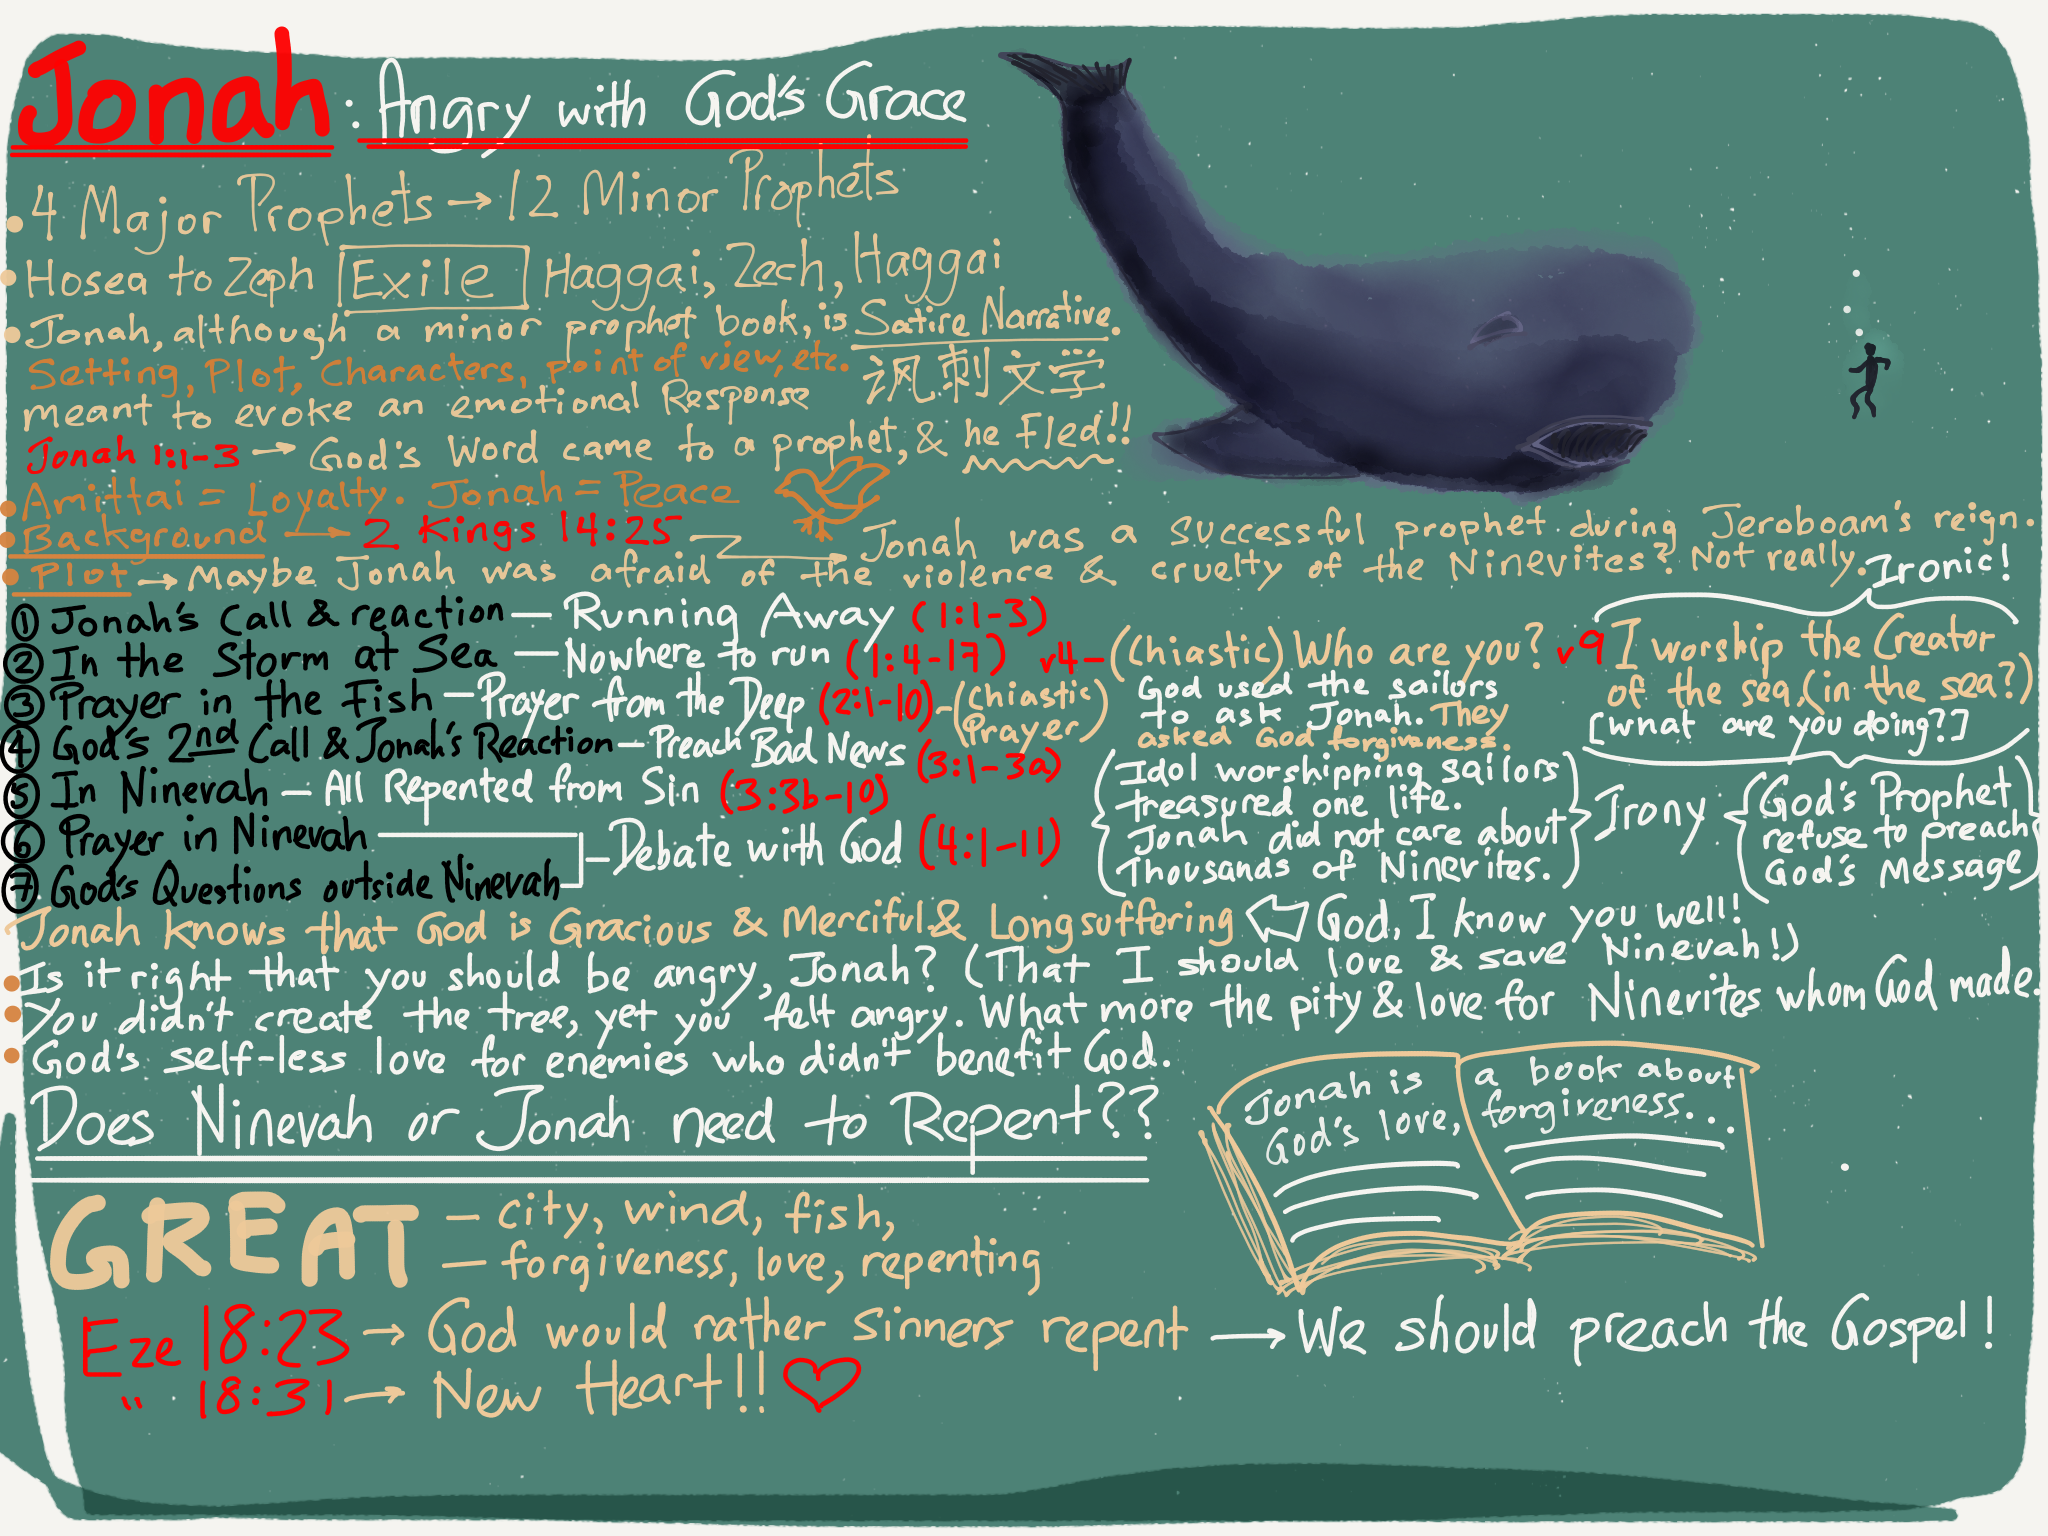 Jonah : Angry with God's Grace
• 4 Major Prophets → 12 Minor Prophets
• Hosea to Zeph Exile Haggai, Zech, Haggai
• Jonah, although a minor prophet book, is Satire Narrative.
Setting, Plot, Characters, point of view, etc. 讽刺文学
meant to evoke an emotional Response
Jonah 1:1-3 → God's Word came to a prophet, & he Fled!!
• Amittai = Loyalty. Jonah = Peace
• Background → 2 Kings 14:25 → Jonah was a successful prophet during Jeroboam's reign.
• Plot → Maybe Jonah was afraid of the violence & cruelty of the Ninevites? Not really. Ironic!
① Jonah's Call & reaction — Running Away (1:1-3)
② In the Storm at Sea — Nowhere to run (1:4-17) v4- (Chiastic) Who are you? v9 I worship the Creator
of the sea, (in the sea?)
[what are you doing?]
God used the sailors
to ask Jonah. They
asked God forgiveness.
③ Prayer in the Fish — Prayer from the Deep (2:1-10) - (Chiastic
Prayer)
④ God's 2nd Call & Jonah's Reaction — Preach Bad News (3:1-3a)
⑤ In Ninevah — All Repented from Sin (3:3b-10)
⑥ Prayer in Ninevah
⑦ God's Questions outside Ninevah
— Debate with God (4:1-11)
{Idol worshipping sailors
treasured one life.
Jonah did not care about
Thousands of Ninevites.}
Irony
{God's Prophet
refuse to preach
God's Message}
Jonah knows that God is Gracious & Merciful & Longsuffering ⇦ God, I know you well!
• Is it right that you should be angry, Jonah? (That I should love & save Ninevah!)
• You didn't create the tree, yet you felt angry. What more the pity & love for Ninevites whom God made.
• God's self-less love for enemies who didn't benefit God.
Does Ninevah or Jonah need to Repent??
Jonah is
God's love,
a book about
forgiveness...
GREAT — city, wind, fish,
— forgiveness, love, repenting
Eze 18:23 → God would rather sinners repent → We should preach the Gospel!
" 18:31 → New Heart!!